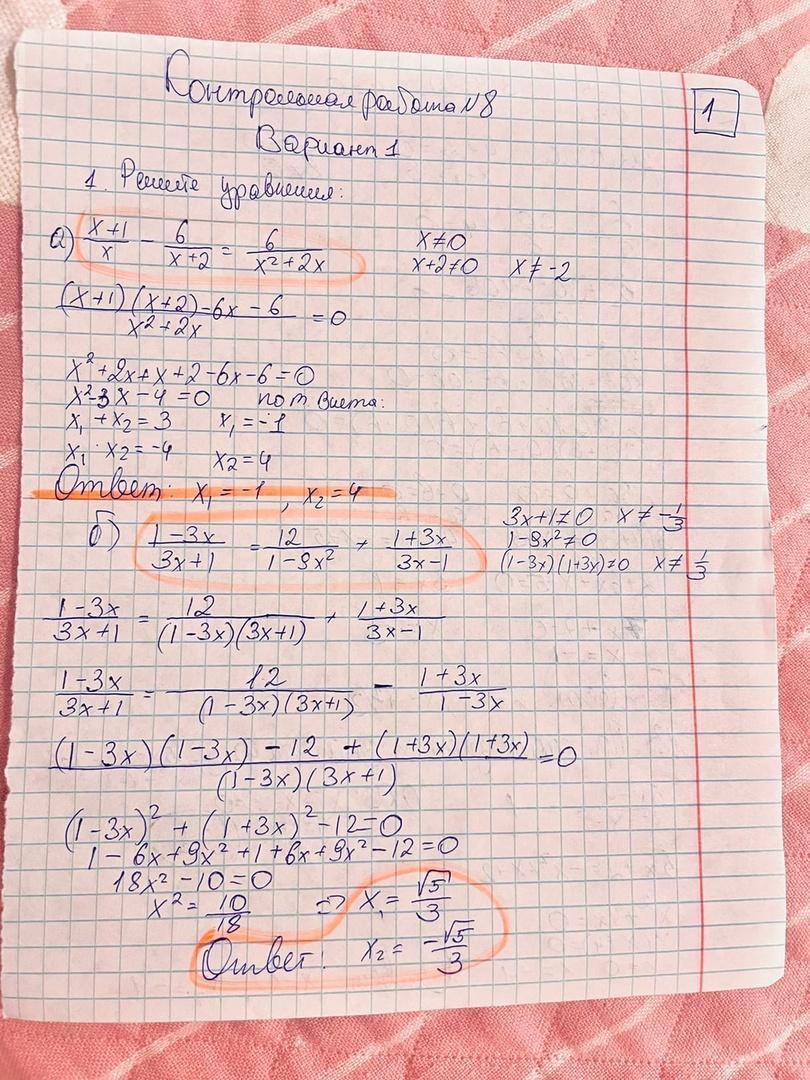 Контрольная работа №8
1
Вариант 1
1. Решите уравнения:
а) (x+1)/x - 6/(x+2) = 6/(x²+2x)    x≠0
x+2≠0    x≠-2
((x+1)(x+2)-6x-6)/(x²+2x) = 0
x²+2x+x+2-6x-6=0
x²-3x-4=0    по т. Виета:
x₁+x₂=3    x₁=-1
x₁·x₂=-4    x₂=4
Ответ: x₁=-1, x₂=4
б) (1-3x)/(3x+1) = 12/(1-9x²) + (1+3x)/(3x-1)    3x+1≠0    x≠-1/3
1-9x²≠0
(1-3x)(1+3x)≠0    x≠1/3
(1-3x)/(3x+1) = 12/((1-3x)(3x+1)) + (1+3x)/(3x-1)
(1-3x)/(3x+1) = 12/((1-3x)(3x+1)) - (1+3x)/(1-3x)
((1-3x)(1-3x)-12+(1+3x)(1+3x))/((1-3x)(3x+1)) = 0
(1-3x)²+(1+3x)²-12=0
1-6x+9x²+1+6x+9x²-12=0
18x²-10=0
x²=10/18    => x₁=√5/3
Ответ: x₂=-√5/3